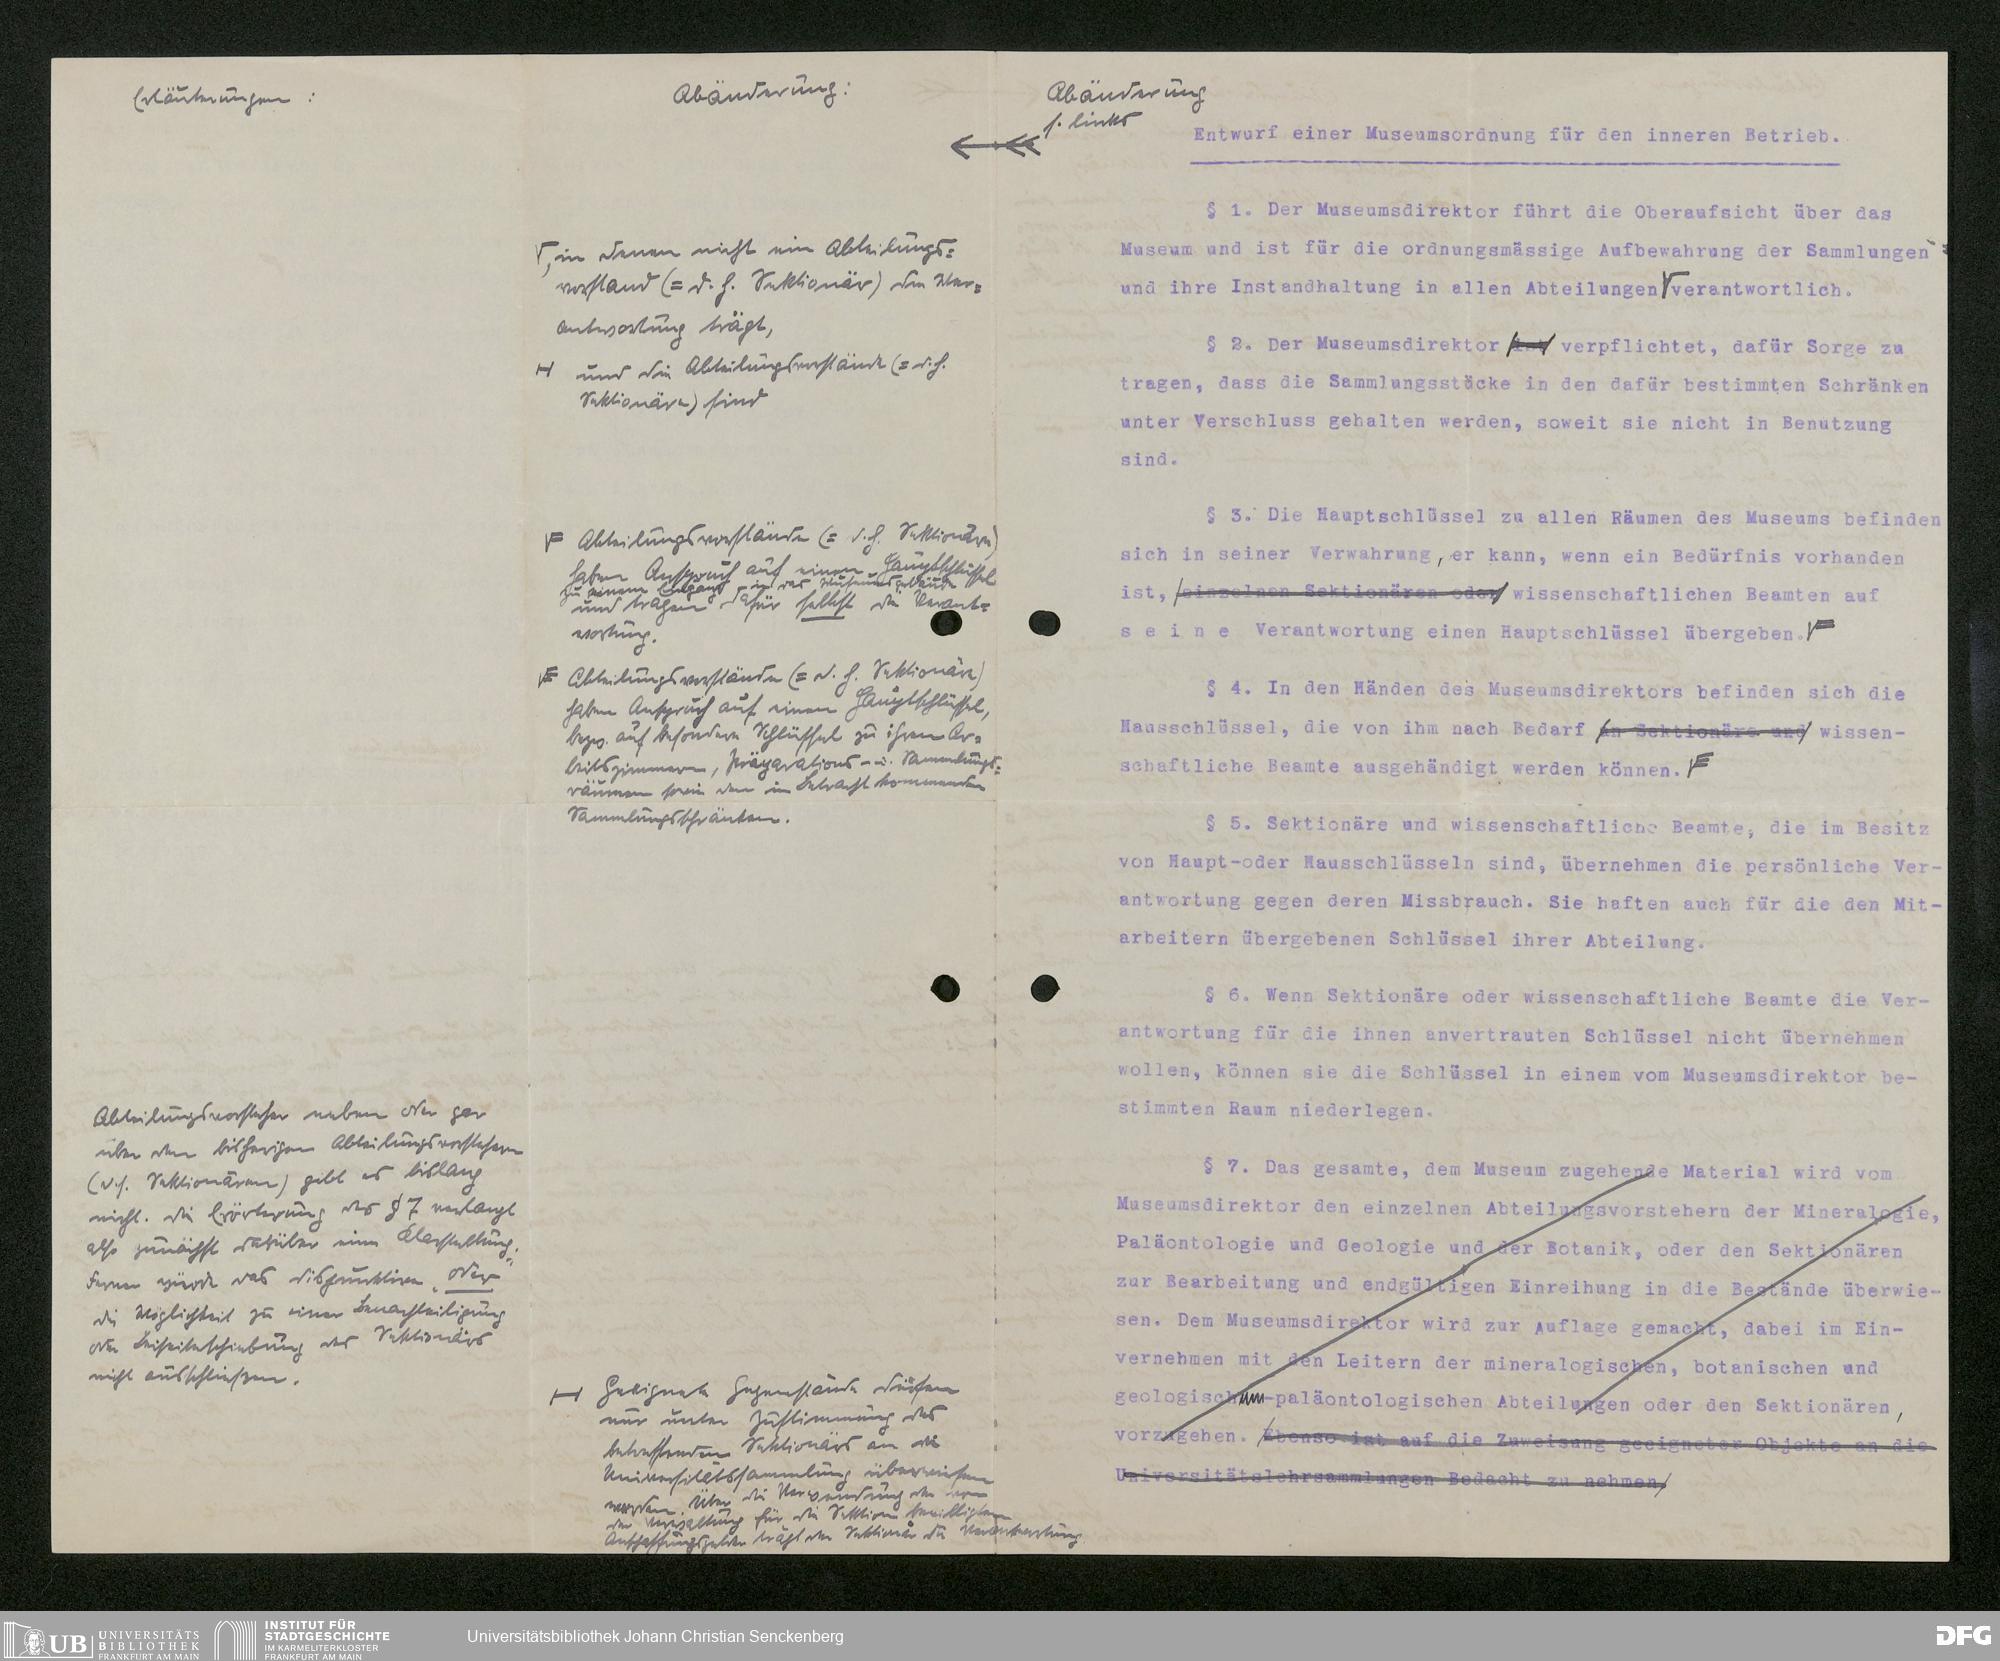 Erläuterungen :
Abteilungsvorsteher neben oder gar
über den bisherigen Abteilungsvorstehern
(d.h. Sektionären) gibt es bislang
nicht. Die Erörterung des § 7 verlangt
also zunächst darüber eine Klarstellung;
Ferner würde das disjunktive „oder“
die Möglichkeit zu einer Benachteiligung
oder Beiseiteschiebung des Sektionärs
nicht ausschließen.
Abänderung:
, in denen nicht ein Abteilungs=
vorstand (= d. h. Sektionär) die Ver=
antwortung trägt,
und die Abteilungsvorstände (= d.h.
Sektionäre) sind
Abteilungsvorstände (= d.h. Sektionäre)
haben Anspruch auf einen Hauptschlüssel
zu einem Eingang in das Museumsgebäude
und tragen dafür selbst die Verant=
wortung.
Abteilungsvorstände (= d. h. Sektionäre)
haben Anspruch auf einen Hauptschlüssel,
bezw. auf besondere Schlüssel zu ihren Ar=
beitszimmern, Präparations- u. Sammlungs=
räumen sowie den in Betracht kommenden
Sammlungsschränken.
Geeignete Gegenstände dürfen
nur unter Zustimmung des
betreffenden Sektionärs an die
Universitätssammlung überwiesen
werden. Über die Verwendung der von
der Verwaltung für die Sektion bewilligten
Anschaffungsgelder trägt der Sektionär die Verantwortung
Abänderung
s. links
Entwurf einer Museumsordnung für den inneren Betrieb.
§ 1. Der Museumsdirektor führt die Oberaufsicht über das
Museum und ist für die ordnungsmässige Aufbewahrung der Sammlungen
und ihre Instandhaltung in allen Abteilungen verantwortlich.
§ 2. Der Museumsdirektor ist verpflichtet, dafür Sorge zu
tragen, dass die Sammlungsstücke in den dafür bestimmten Schränken
unter Verschluss gehalten werden, soweit sie nicht in Benutzung
sind.
§ 3. Die Hauptschlüssel zu allen Räumen des Museums befinden
sich in seiner Verwahrung, er kann, wenn ein Bedürfnis vorhanden
ist, einzelnen Sektionären oder wissenschaftlichen Beamten auf
s e i n e Verantwortung einen Hauptschlüssel übergeben.
§ 4. In den Händen des Museumsdirektors befinden sich die
Hausschlüssel, die von ihm nach Bedarf an Sektionäre und wissen-
schaftliche Beamte ausgehändigt werden können.
§ 5. Sektionäre und wissenschaftliche Beamte, die im Besitz
von Haupt-oder Hausschlüsseln sind, übernehmen die persönliche Ver-
antwortung gegen deren Missbrauch. Sie haften auch für die den Mit-
arbeitern übergebenen Schlüssel ihrer Abteilung.
§ 6. Wenn Sektionäre oder wissenschaftliche Beamte die Ver-
antwortung für die ihnen anvertrauten Schlüssel nicht übernehmen
wollen, können sie die Schlüssel in einem vom Museumsdirektor be-
stimmten Raum niederlegen.
§ 7. Das gesamte, dem Museum zugehende Material wird vom
Museumsdirektor den einzelnen Abteilungsvorstehern der Mineralogie,
Paläontologie und Geologie und der Botanik, oder den Sektionären
zur Bearbeitung und endgültigen Einreihung in die Bestände überwie-
sen. Dem Museumsdirektor wird zur Auflage gemacht, dabei im Ein-
vernehmen mit den Leitern der mineralogischen, botanischen und
geologischen-paläontologischen Abteilungen oder den Sektionären,
vorzugehen. Ebenso ist auf die Zuweisung geeigneter Objekte an die
Universitätslehrsammlungen Bedacht zu nehmen
UB UNIVERSITÄTS
BIBLIOTHEK
FRANKFURT AM MAIN
INSTITUT FÜR
STADTGESCHICHTE
IM KARMELITERKLOSTER
FRANKFURT AM MAIN
Universitätsbibliothek Johann Christian Senckenberg
DFG